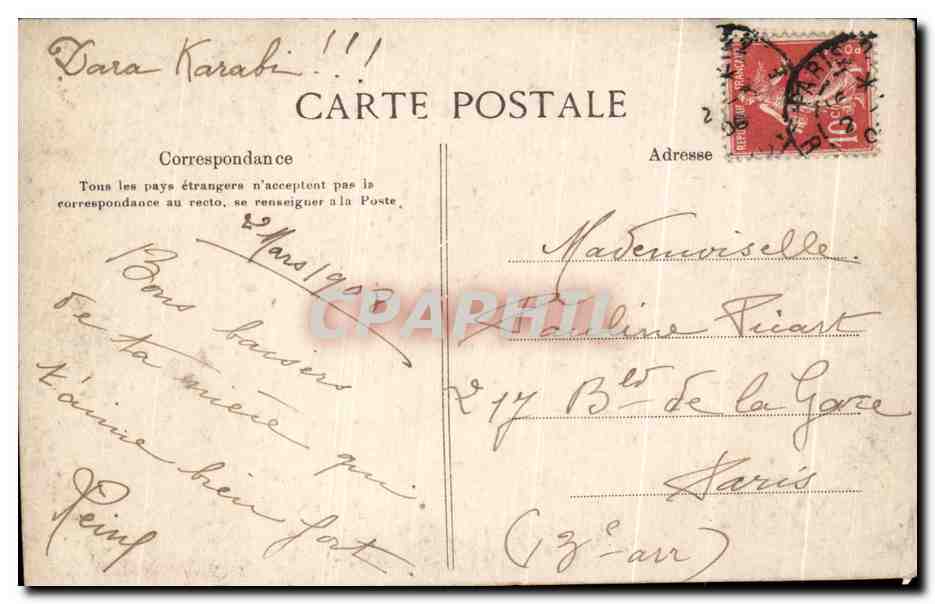 Dara Karabi !!!
CARTE POSTALE
REPUBLIQUE FRANÇAISE
10
PARIS
Correspondance
Adresse
Tous les pays étrangers n'acceptent pas la
correspondance au recto, se renseigner a la Poste.
2 Mars 190
Bons baisers
de ta mère qui
t'aime bien fort.
Mademoiselle.
Pauline Picart
217 Bld de la Gare
Paris
(13e arr)
CPAPHIL